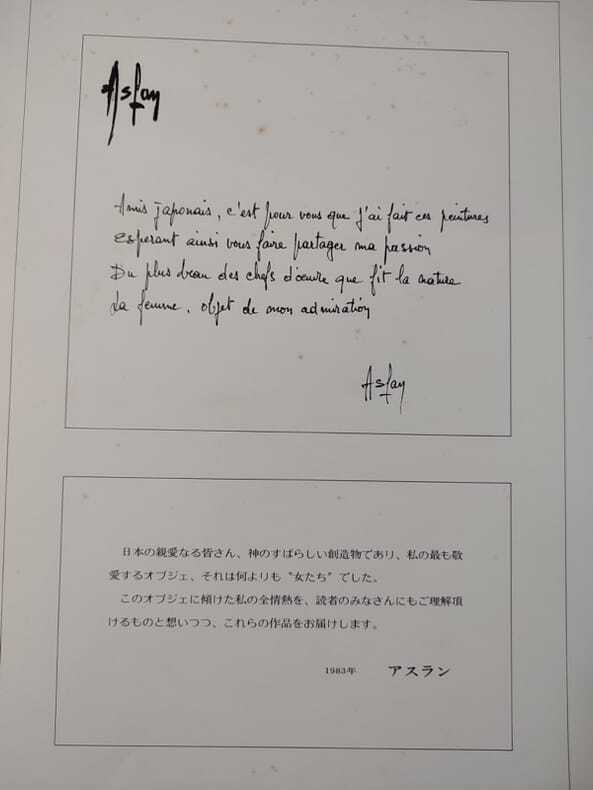 Aslan
Amis japonais, c'est pour vous que j'ai fait ces peintures
Esperant ainsi vous faire partager ma passion
Du plus beau des chefs d'œuvre que fit la nature
La femme, objet de mon admiration
Aslan
日本の親愛なる皆さん、神のすばらしい創造物であり、私の最も敬
愛するオブジェ、それは何よりも〝女たち〟でした。
このオブジェに傾けた私の全情熱を、読者のみなさんにもご理解頂
けるものと想いつつ、これらの作品をお届けします。
1983年 アスラン